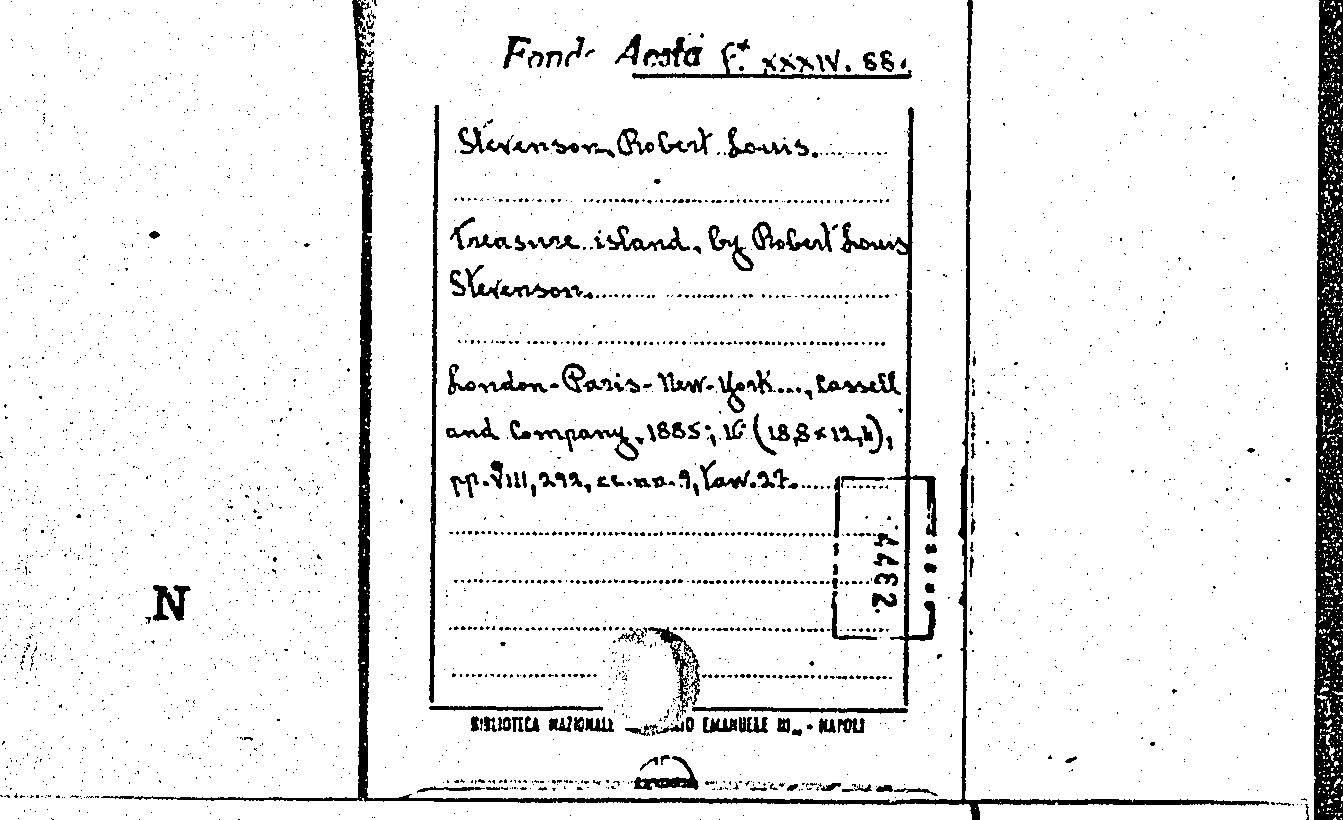 Fondo Aosta f.* XXXIV. 88.
Stevenson, Robert Louis.
Treasure island, by Robert Louis
Stevenson.
London - Paris - New-York..., Cassell
and Company, 1885; 16° (18,8 x 12,4),
pp. VIII, 292, cc. nn. 9, tav. 27.
4482
N
BIBLIOTECA NAZIONALE EMANUELE III - NAPOLI